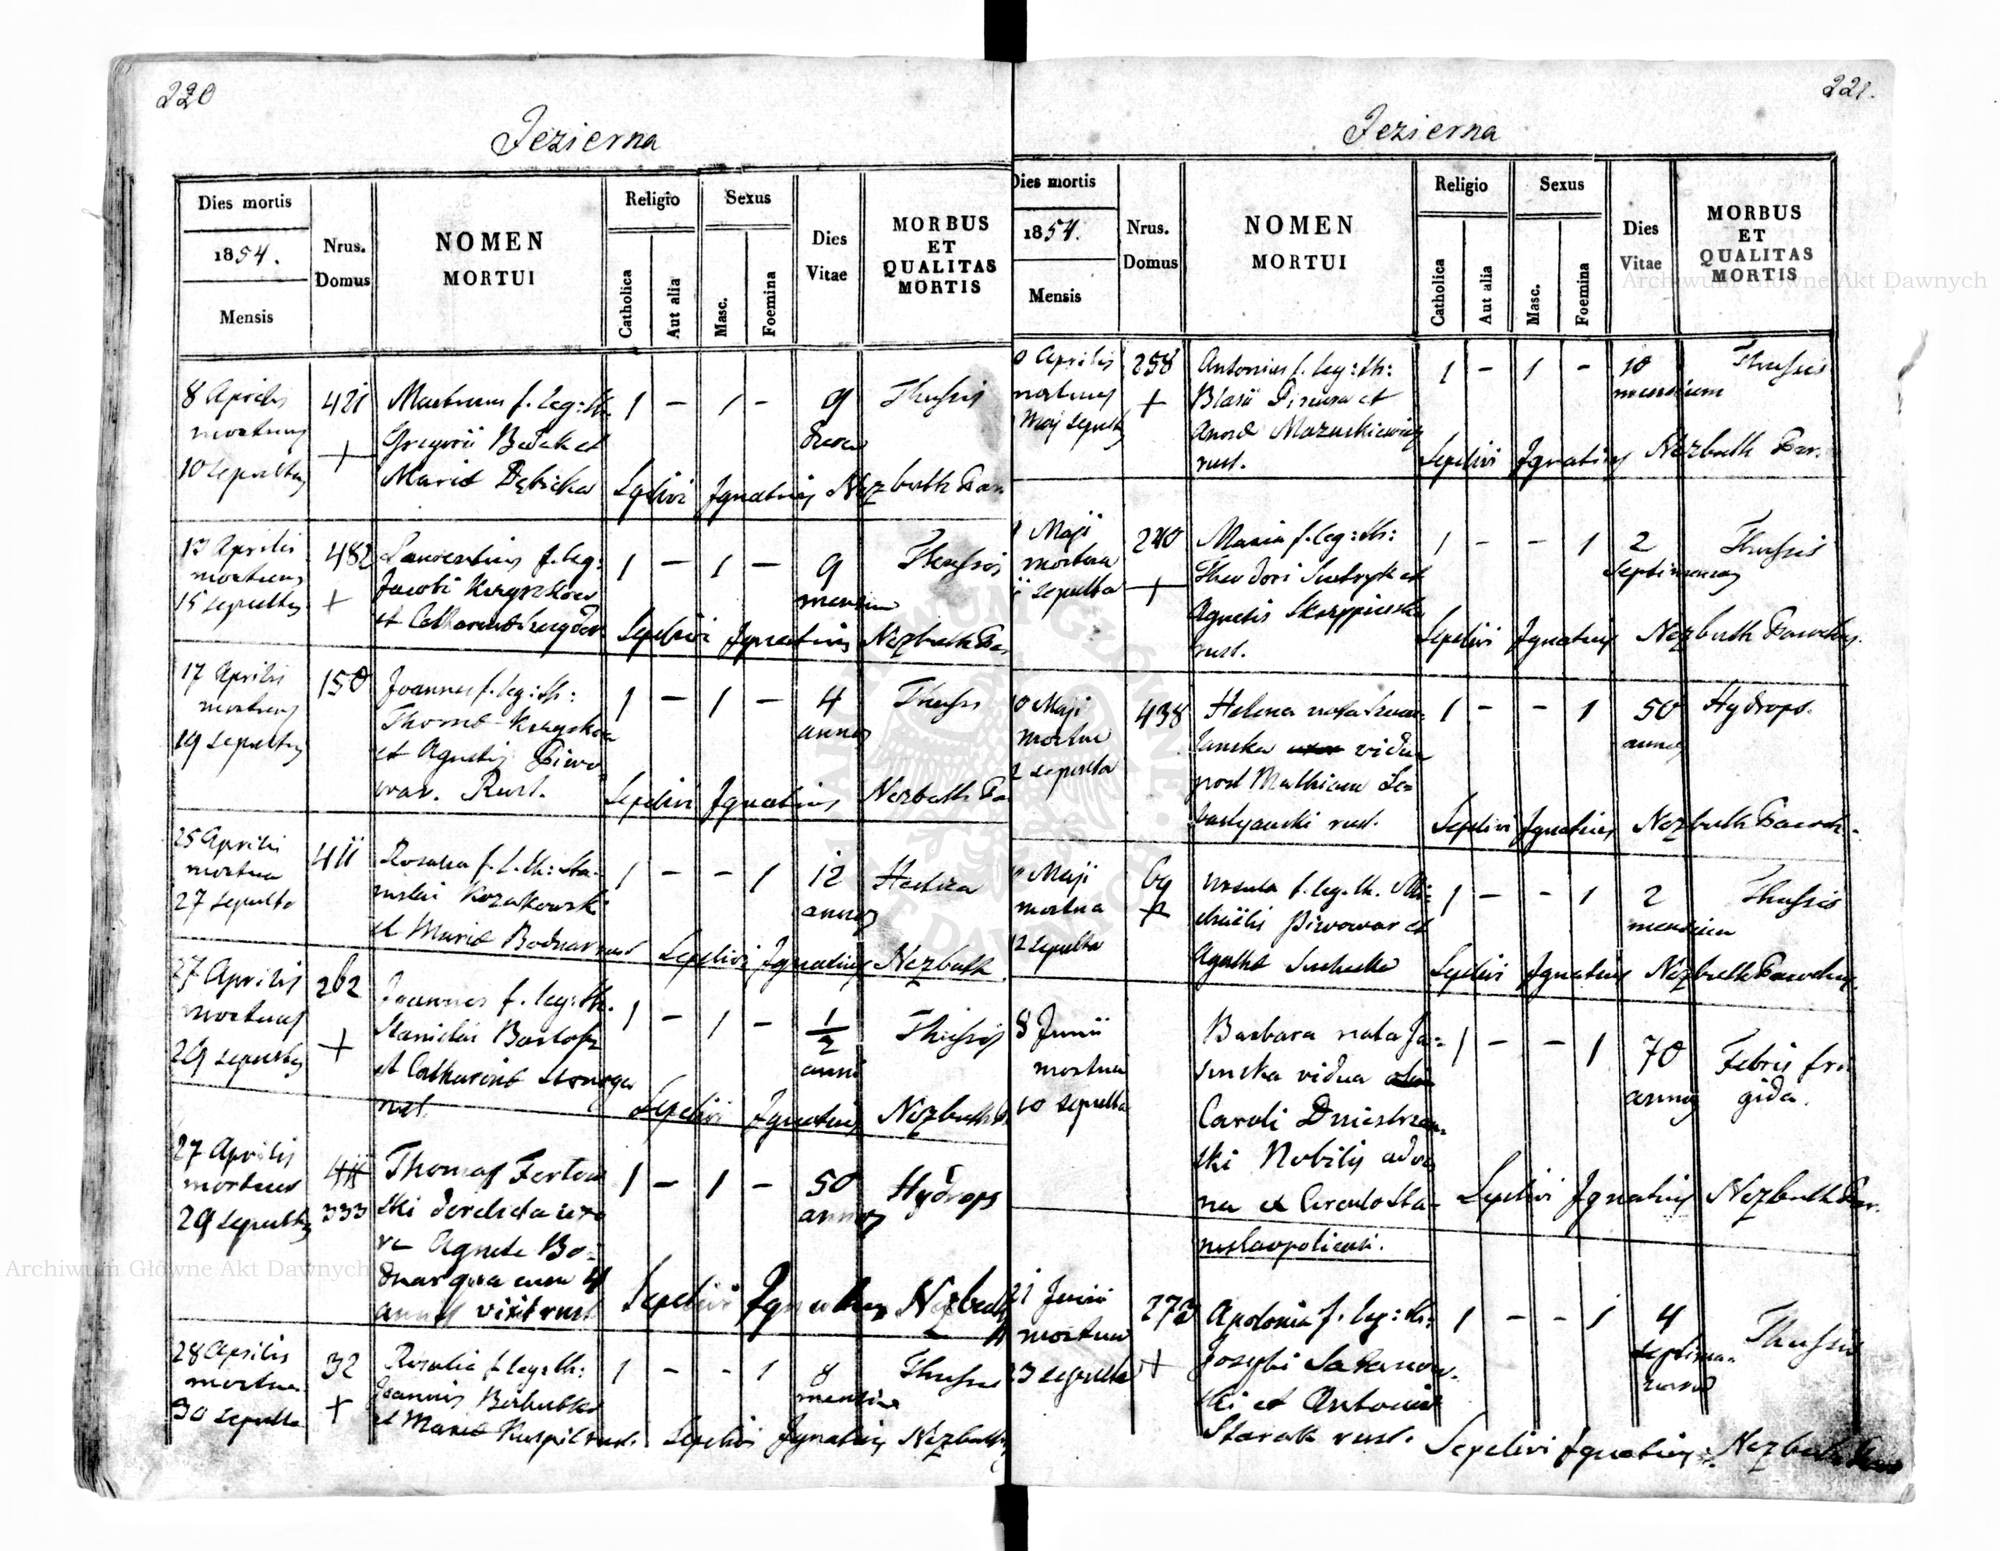 220
Jezierna
Dies mortis
1854.
Mensis
Nrus.
Domus
NOMEN
MORTUI
Religio
Catholica
Aut alia
Sexus
Masc.
Foemina
Dies
Vitae
MORBUS
ET
QUALITAS
MORTIS
8 Aprilis
mortuus
10 sepultus
421
+
f. leg: th:
Gregorii Bedak et
Mariæ Dębicka
1 — 1 —
9
Thussis
Sepelivi Ignatius Nezbuth
13 Aprilis
mortuus
15 sepultus
482
+
Laurentius f. leg:
Jacobi
et Catharinæ
1 — 1 —
9
mensium
Thussis
Sepelivi Ignatius Nezbuth
17 Aprilis
mortuus
19 sepultus
150
Joannes f. leg: th:
Thomæ
et Agnetis Piwo
war. Rust.
1 — 1 —
4
annos
Thussis
Sepelivi Ignatius Nezbuth
25 Aprilis
mortua
27 sepulta
411
Rosalia f. l. th: Sta-
nislai Kozakowski
et Mariæ Bodnar rust
1 — — 1
12
annos
Hectica
Sepelivi Ignatius Nezbuth
27 Aprilis
mortuus
29 sepultus
262
+
Joannes f. leg: th:
Stanislai
et Catharinæ
rust.
1 — 1 —
1/2
anni
Thussis
Sepelivi Ignatius Nezbuth
27 Aprilis
mortuus
29 sepultus
411
333
Thomas
ski derelicta uxo
re Agnete Bo-
dnar quacum 4
annis vixit rust
1 — 1 —
50
annos
Hydrops
Sepelivi Ignatius Nezbuth
28 Aprilis
mortua
30 sepulta
32
+
Rosalia f. leg: th:
Joannis
et Mariæ rust.
1 — — 1
8
mensium
Thussis
Sepelivi Ignatius Nezbuth
221.
Jezierna
Dies mortis
1854.
Mensis
Nrus.
Domus
NOMEN
MORTUI
Religio
Catholica
Aut alia
Sexus
Masc.
Foemina
Dies
Vitae
MORBUS
ET
QUALITAS
MORTIS
0 Aprilis
mortuus
Maji sepultus
258
+
Antonius f. leg: th:
Blasii et
Annæ Mazurkiewicz
rust.
1 — 1 —
10
mensium
Thussis
Sepelivi Ignatius Nezbuth Par.
Maji
mortua
sepulta
240
+
Maria f. leg: th:
Theodori et
Agnetis
rust.
1 — — 1
2
septimanas
Thussis
Sepelivi Ignatius Nezbuth Parochus.
0 Maji
mortua
2 sepulta
438
Helena nata
vidua
post Mathiam Se-
bastyanski rust.
1 — — 1
50
annos
Hydrops.
Sepelivi Ignatius Nezbuth Paroch.
Maji
mortua
12 sepulta
69
+
Ursula f. leg. th. Mi-
chaëlis Piwowar et
Agathæ
1 — — 1
2
mensium
Thussis
Sepelivi Ignatius Nezbuth Parochus.
8 Junii
mortua
10 sepulta
Barbara nata Ja-
sinska vidua
Caroli Dniestrzan-
ski Nobilis adve
na ex Circulo Sta-
nislaopoliensi.
1 — — 1
70
annos
Febris fri-
gida.
Sepelivi Ignatius Nezbuth Par.
21 Junii
mortua
23 sepulta
273
+
Apolonia f. leg: th:
Josephi
ski et Antoniæ
Starak rust.
1 — — 1
4
septima-
narum
Thussis
Sepelivi Ignatius Nezbuth
Archiwum Główne Akt Dawnych
Archiwum Główne Akt Dawnych
ARCHIWUM GŁÓWNE AKT DAWNYCH